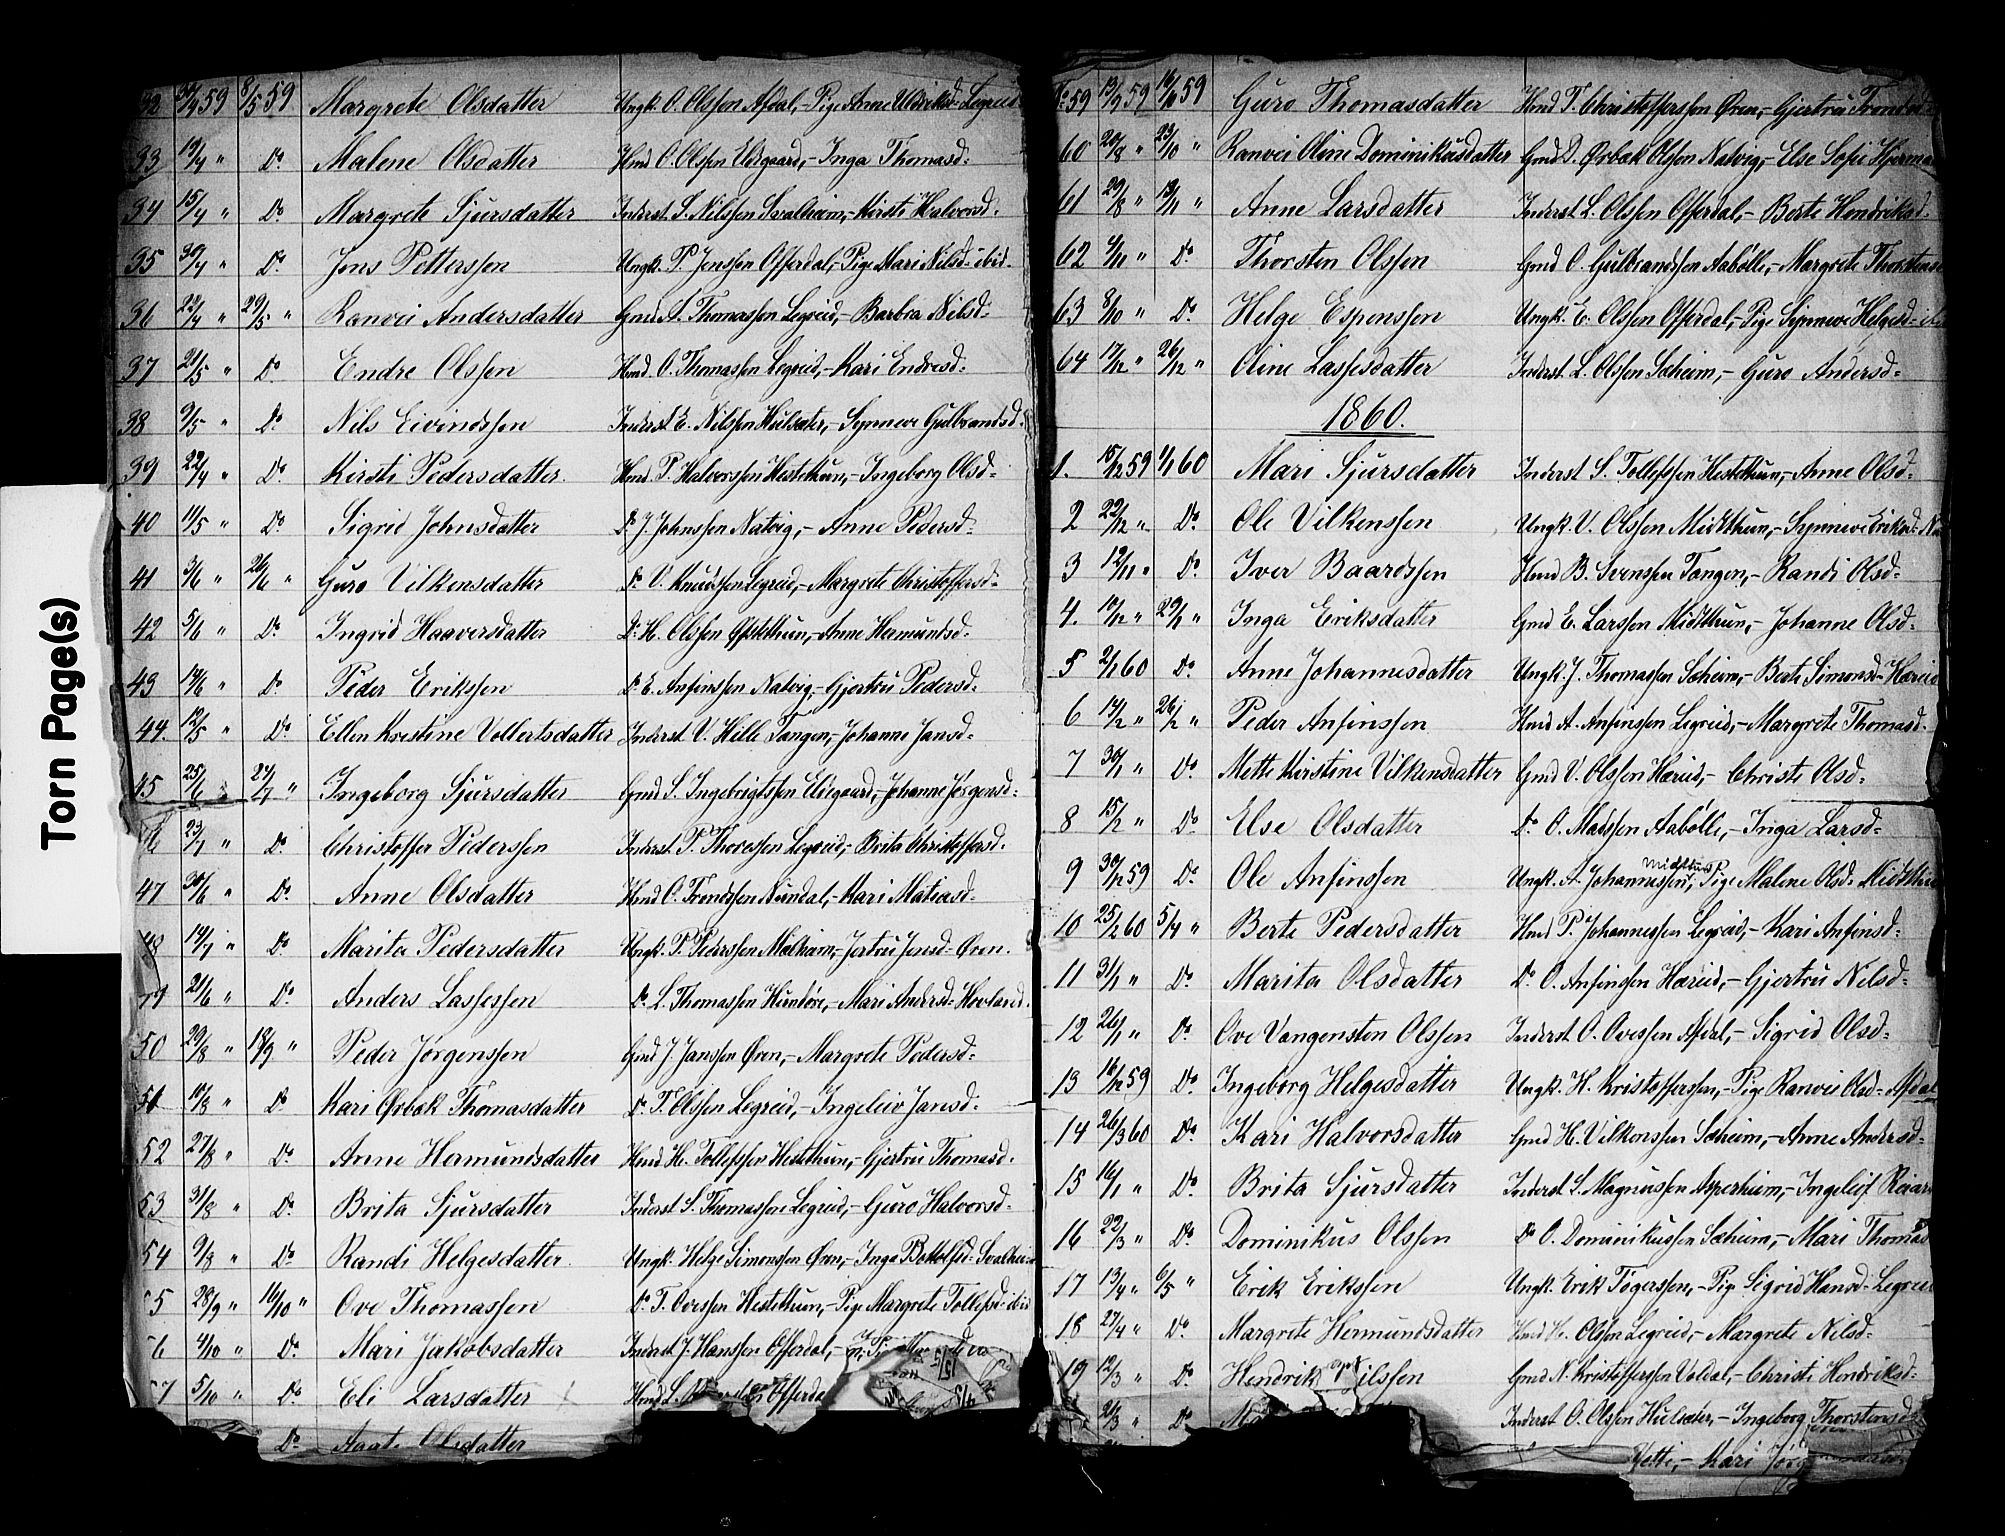 Torn Page(s)
32 30/4 59 8/5 59 Margrete Olsdatter Ungk. O. Olssen Afdal,- Pige Anne Uldriksd- Legreid
33 19/4 " Do Malene Olsdatter Hmd O. Olssen Eldegaard,- Inga Thomasd-
34 15/4 " Do Margrete Sjursdatter Inderst S. Nilssen Svalheim,- Kirsti Halvorsd-
35 30/4 " Do Jens Petterssen Ungk. P. Jenssen Offerdal, Pige Mari Nilsd- ibid-
36 22/4 " 29/5 " Ranvei Andersdatter Gmd A. Thomassen Legreid,- Barbra Nilsd-
37 21/5 " Do Endre Olssen Hmd. O. Thomassen Legreid,- Kari Endresd-
38 9/5 " Do Nils Eivindssen Inderst E. Nilssen Hulsæter,- Synneve Gulbrandsd-
39 22/4 " Do Kirsti Pedersdatter Hmd. P. Halvorssen Hestethun,- Ingeborg Olsd-
40 11/5 " Do Sigrid Johnsdatter Do J. Johnssen Natvig,- Anne Pedersd-
41 3/6 " 26/6 " Guro Vilkensdatter Do V. Knudssen Legreid,- Margrete Christoffersd-
42 5/6 " Do Ingrid Haaversdatter Do H. Olssen Hestethun,- Anne Hermundsd-
43 14/6 " Do Peder Erikssen Do E. Anfinssen Natvig,- Gjertru Pedersd-
44. 12/5 " Do Ellen Kristine Vollertsdatter Inderst V. Helle Tangen,- Johanne Jansd-
45 25/6 27/7 " Ingeborg Sjursdatter Gmd S. Ingebrigtssen Eldegaard,- Johanne Jørgensd-
23/7 " Do Christoffer Pederssen Inderst P. Thoressen Legreid,- Brita Christoffersd-
47 30/6 " Do Anne Olsdatter Hmd O. Trondssen Nundal,- Kari Matiasd-
48 14/7 " Do Marita Pedersdatter Ungk. P. Pederssen Molheim,- Jertru Jensd- Øren.
49 21/6 " Do Anders Lassessen Do L. Thomassen Hundøre,- Mari Andersd- Hovland.
50 29/8 " 18/9 " Peder Jørgenssen Gmd J. Janssen Øren,- Margrete Pedersd-
51 10/8 " Do Kari Ørbæk Thomasdatter Do T. Olssen Legreid,- Ingeleiv Jansd-
52 27/8 " Do Anne Hermundsdatter Hmd H. Tollefssen Hestethun,- Gjertru Thomasd-
53 31/8 " Do Brita Sjursdatter Inderst S. Thomassen Legreid,- Guro Halvorsd-
54 9/8 " Do Randi Helgesdatter Ungk. Helge Simonssen Øren,- Inga Bottolfsd- Svalhei
5 28/9 " 16/10 " Ove Thomassen Do T. Ovessen Hestethun,- Pige Margrete Tollefsd- ibid
6 4/10 " Do Mari Jakobsdatter Inderst J. Hanssen Offerdal,-
7 5/10 " Do Eli Larsdatter Hmd L. Offerda
Do Aagate Olsdatter
No 59 13/9 59 16/10 59 Guro Thomasdatter Hmd T. Christofferssen Øren,- Gjertru Trondsd-
60 20/8 " 23/10 " Ranvei Oline Dominikusdatter Gmd D. Ørbæk Olssen Natvig,- Else Sofie Hjerma
61 29/8 " 13/11 " Anne Larsdatter Inderst L. Olssen Offerdal,- Berte Hendriksd-
62 4/11 " Do Thorsten Olssen Gmd O. Gulbrandssen Aabølle,- Margrete Thorstensd
63 8/10 " Do Helge Espenssen Ungk. E. Olssen Offerdal,- Pige Synneve Helgesd- ibi
64 17/12 " 26/12 " Oline Lassesdatter Inderst L. Olssen Sæheim,- Guro Andersd-
1860.
1. 15/12 59 1/1 60 Mari Sjursdatter Inderst S. Tollefssen Hestethun,- Anne Olsd-
2 22/12 " Do Ole Vilkenssen Ungk. V. Olssen Midtthun,- Synneve Eriksd-
3 12/11 " Do Iver Baardssen Hmd B. Svenssen Tangen,- Randi Olsd-
4. 10/12 " 29/1 " Inga Eriksdatter Gmd E. Larssen Midtthun,- Johanne Olsd-
5 2/1 60 Do Anne Johannesdatter Ungk. J. Thomassen Sæheim,- Berte Simonsd- Hæreid
6 14/2 " 26/2 " Peder Anfinssen Hmd A. Anfinssen Legreid,- Margrete Thomasd-
7 30/1 " Do Mette Kirstine Vilkensdatter Gmd V. Olssen Hæreid,- Christi Olsd-
8 15/2 " Do Else Olsdatter Do O. Madssen Aabølle,- Inga Larsd-
9 30/12 59 Do Ole Anfinssen Ungk. A. Johannessen Midtthun, Pige Malene Olsd- Midtthun
10 25/2 60 5/4 " Berte Pedersdatter Hmd P. Johannessen Legreid,- Kari Anfinsd-
11 31/1 " Do Marita Olsdatter Do O. Anfinssen Hæreid,- Gjertru Nilsd-
12 26/1 " Do Ove Vangensten Olssen Inderst O. Ovessen Afdal,- Sigrid Olsd-
13 16/12 59 Do Ingeborg Helgesdatter Ungk. H. Kristofferssen,- Pige Ranvei Olsd- Afdal
14 26/3 60 Do Kari Halvorsdatter Gmd H. Vilkenssen Sæheim,- Anne Andersd-
15 16/1 " Do Brita Sjursdatter Inderst S. Magnussen Asperheim,- Ingeleif Reiar
16 22/3 " Do Dominikus Olssen Do O. Dominikussen Sæheim,- Mari Thomas
17 13/4 " 6/5 " Erik Erikssen Ungk. Erik Tøgerssen,- Pige Sigrid Hansd- Legreid
18 27/4 " Do Margrete Hermundsdatter Hmd H. Olssen Legreid,- Margrete Nilsd-
19 12/3 " Do Hendrik Nilssen Gmd N. Kristofferssen Voldal,- Christi Hendriksd-
21/3 " Do Inderst O. Olssen Hulsæter,- Ingeborg Thorstensd
Vetti,- Kari